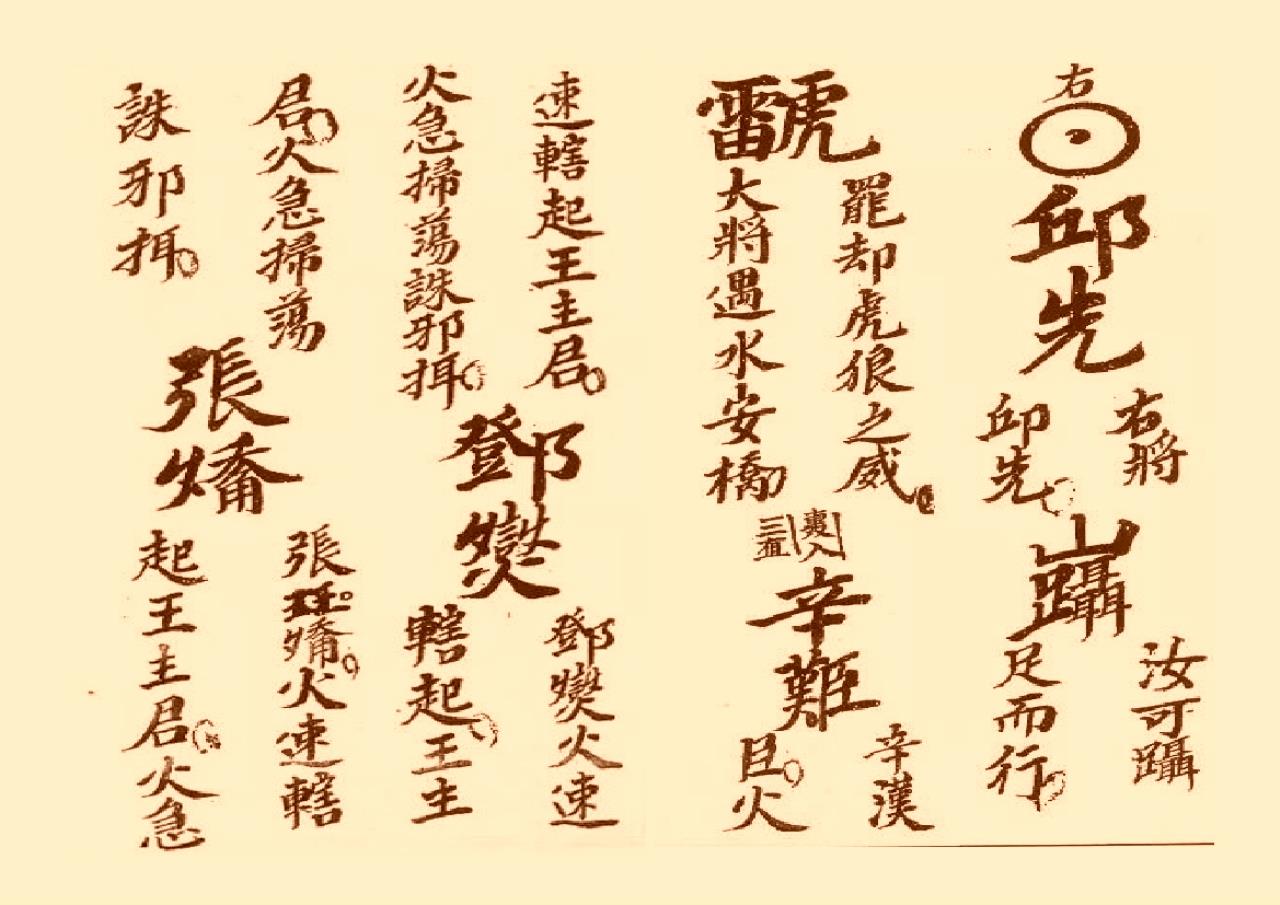 右
邱先
右將
邱先
躡
汝可躡
足而行
雷虎
罷却虎狼之威
大將遇水安橋
辛
辛漢
臣火
速轄起王主君
火急掃蕩誅邪
鄧燮
鄧燮火速
轄起王主
君火急掃蕩
誅邪
張燆
張燆火速轄
起王主君火急